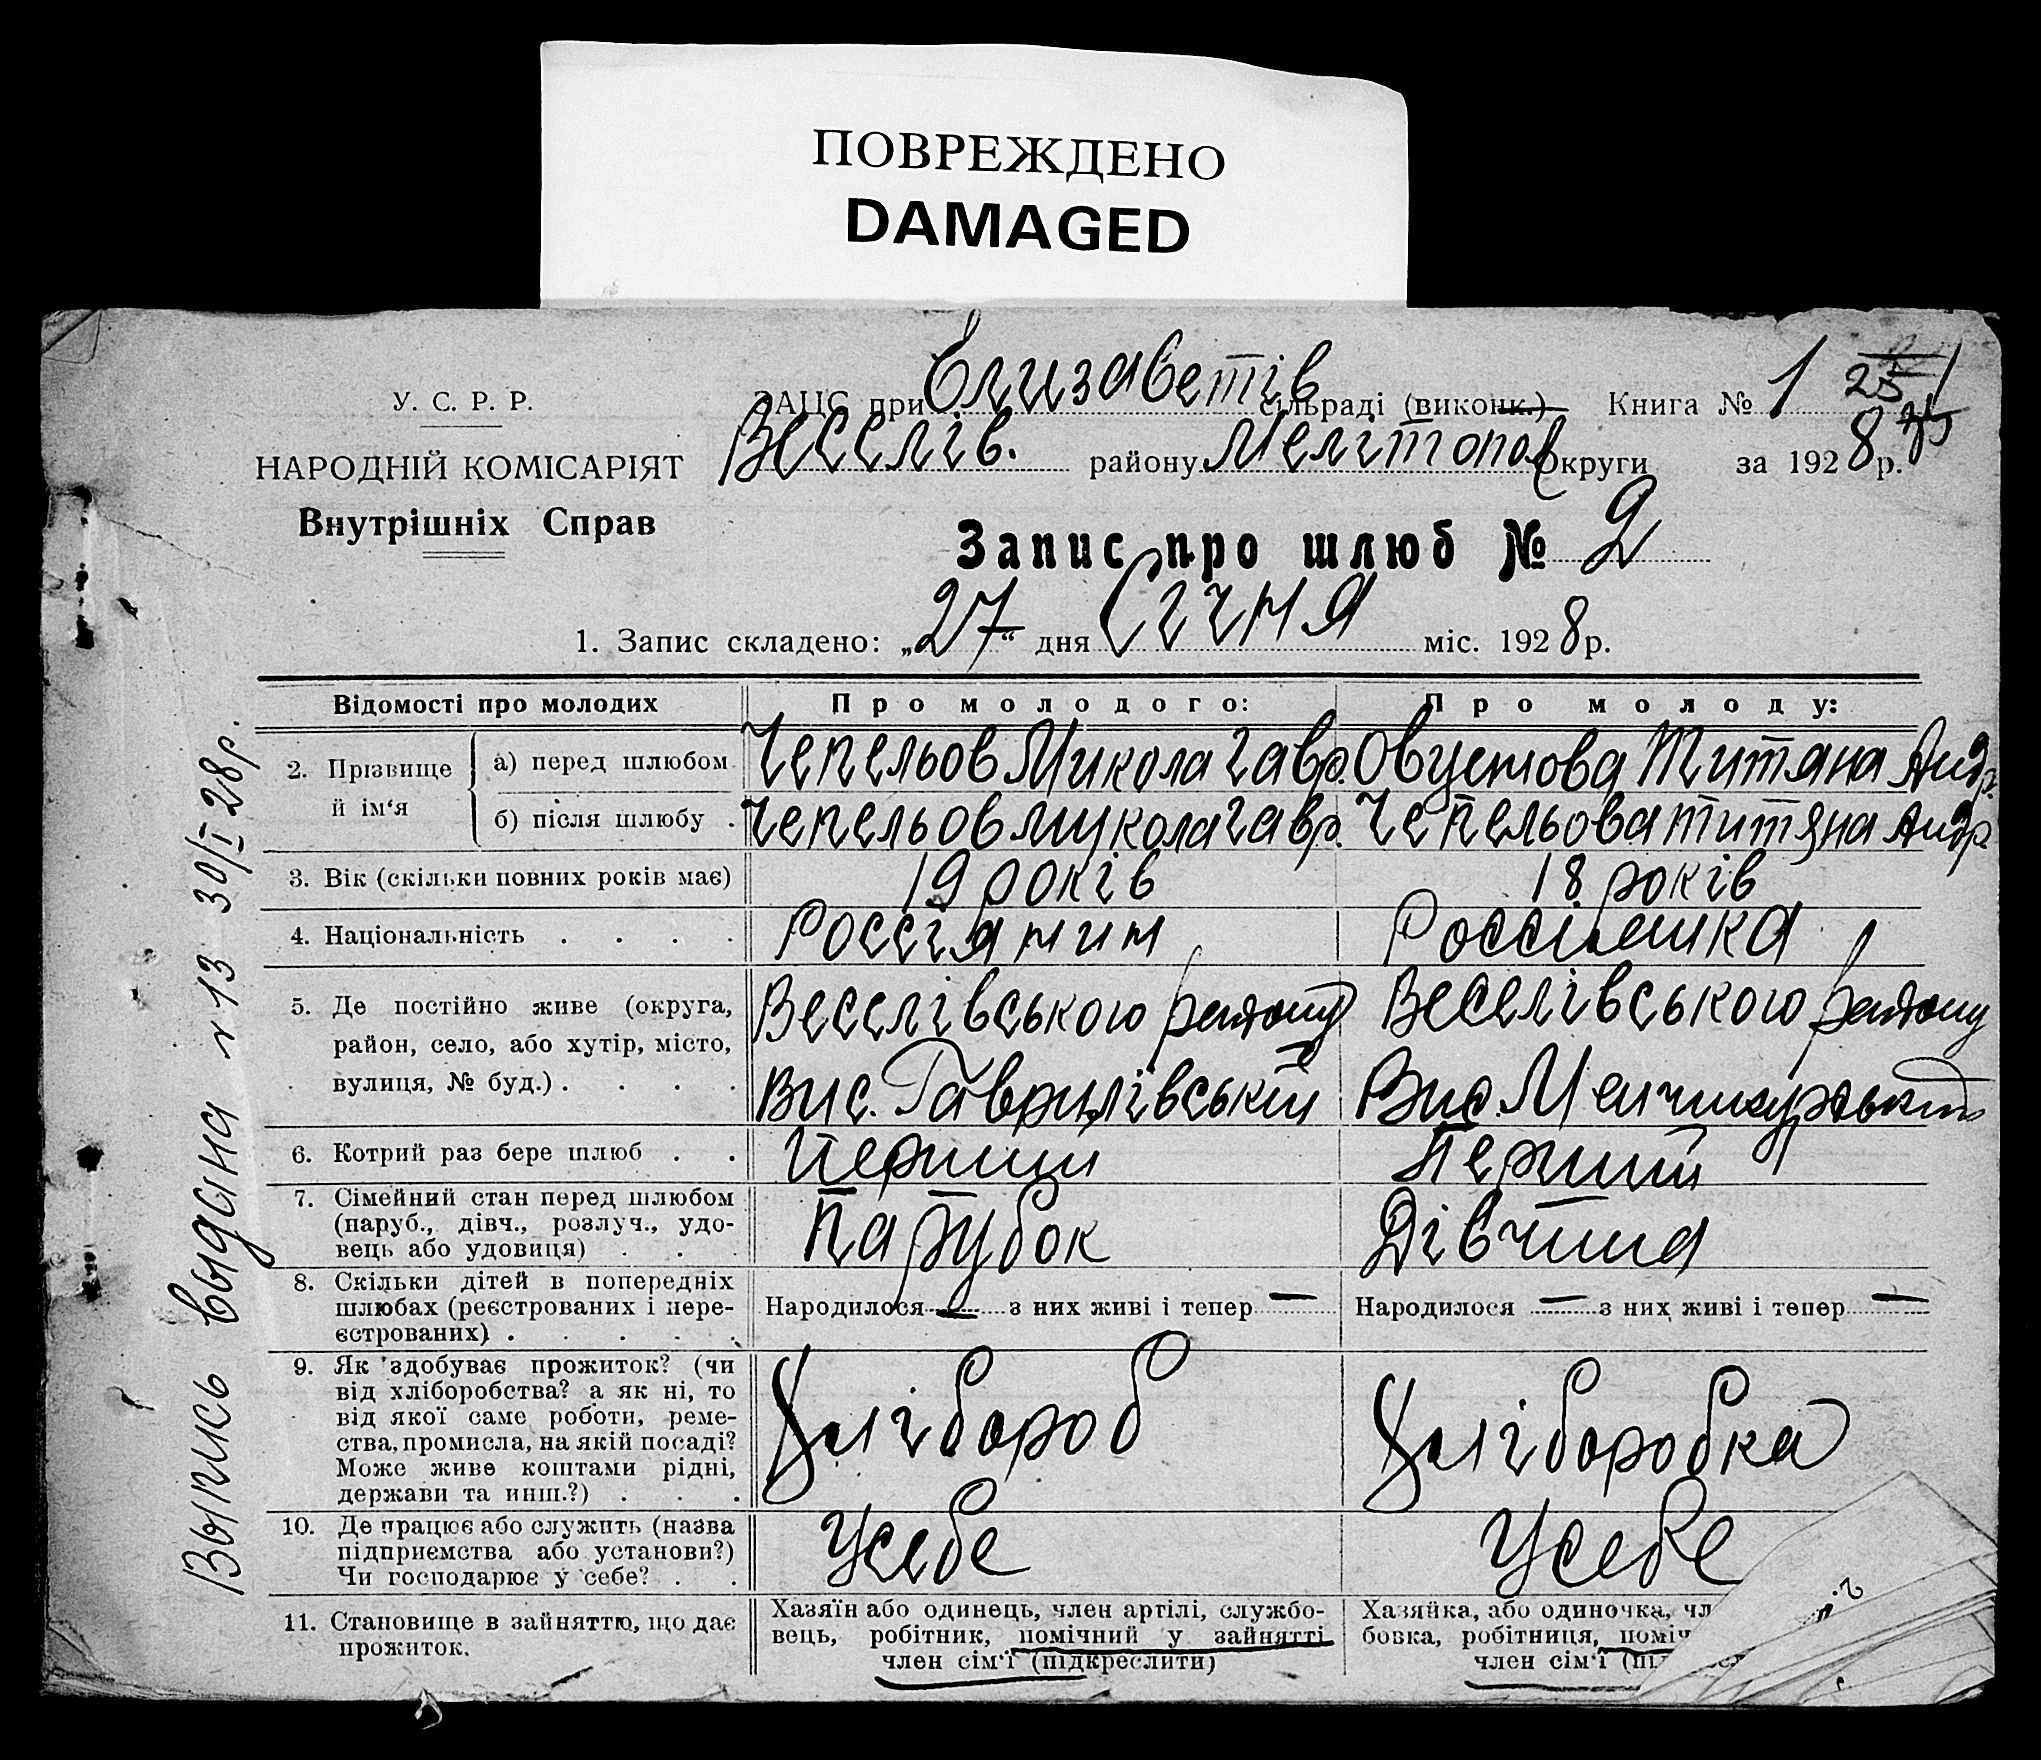 ПОВРЕЖДЕНО
DAMAGED
У. С. Р. Р.
НАРОДНІЙ КОМІСАРІЯТ
Внутрішніх Справ
ЗАЦС при Єлизаветів сільраді (виконк.) Книга № 1
Веселів. району Мелітопол округи за 1928 р.
Запис про шлюб № 2
1. Запис складено: „27“ дня Січня міс. 1928 р.
Відомості про молодих Про молодого: Про молоду:
2. Прізвище й ім'я
а) перед шлюбом Чепельов Микола Гавр. Овустова Титяна Андр.
б) після шлюбу . Чепельов Микола Гавр. Чепельова Титяна Андр.
3. Вік (скільки повних років має) 19 років 18 років
4. Національність . . . . Россіянин Россіянка
5. Де постійно живе (округа,
район, село, або хутір, місто,
вулиця, № буд.) . . . .
Веселівського району
Вис. Гаврилівській
Веселівського району
Вис. Менчикурський
6. Котрий раз бере шлюб . . Перший Перший
7. Сімейний стан перед шлюбом
(паруб., дівч., розлуч., удо-
вець або удовиця) . . .
Парубок Дівчина
8. Скільки дітей в попередніх
шлюбах (реєстрованих і нере-
єстрованих) . . . . .
Народилося — з них живі і тепер — Народилося — з них живі і тепер —
9. Як здобуває прожиток? (чи
від хліборобства? а як ні, то
від якої саме роботи, реме-
ства, промисла, на якій посаді?
Може живе коштами рідні,
держави та инш.?) . . .
Хлібороб Хліборобка
10. Де працює або служить (назва
підприємства або установи?)
Чи господарює у себе? . .
Усебе Усебе
11. Становище в зайняттю, що дає
прожиток.
Хазяїн або одинець, член артілі, службо-
вець, робітник, помічний у зайнятті
член сім'ї (підкреслити)
Хазяйка, або одиночка, чл
бовка, робітниця, поміч
член сім'ї (пі
Выпись выдана №13 30/I 28р.